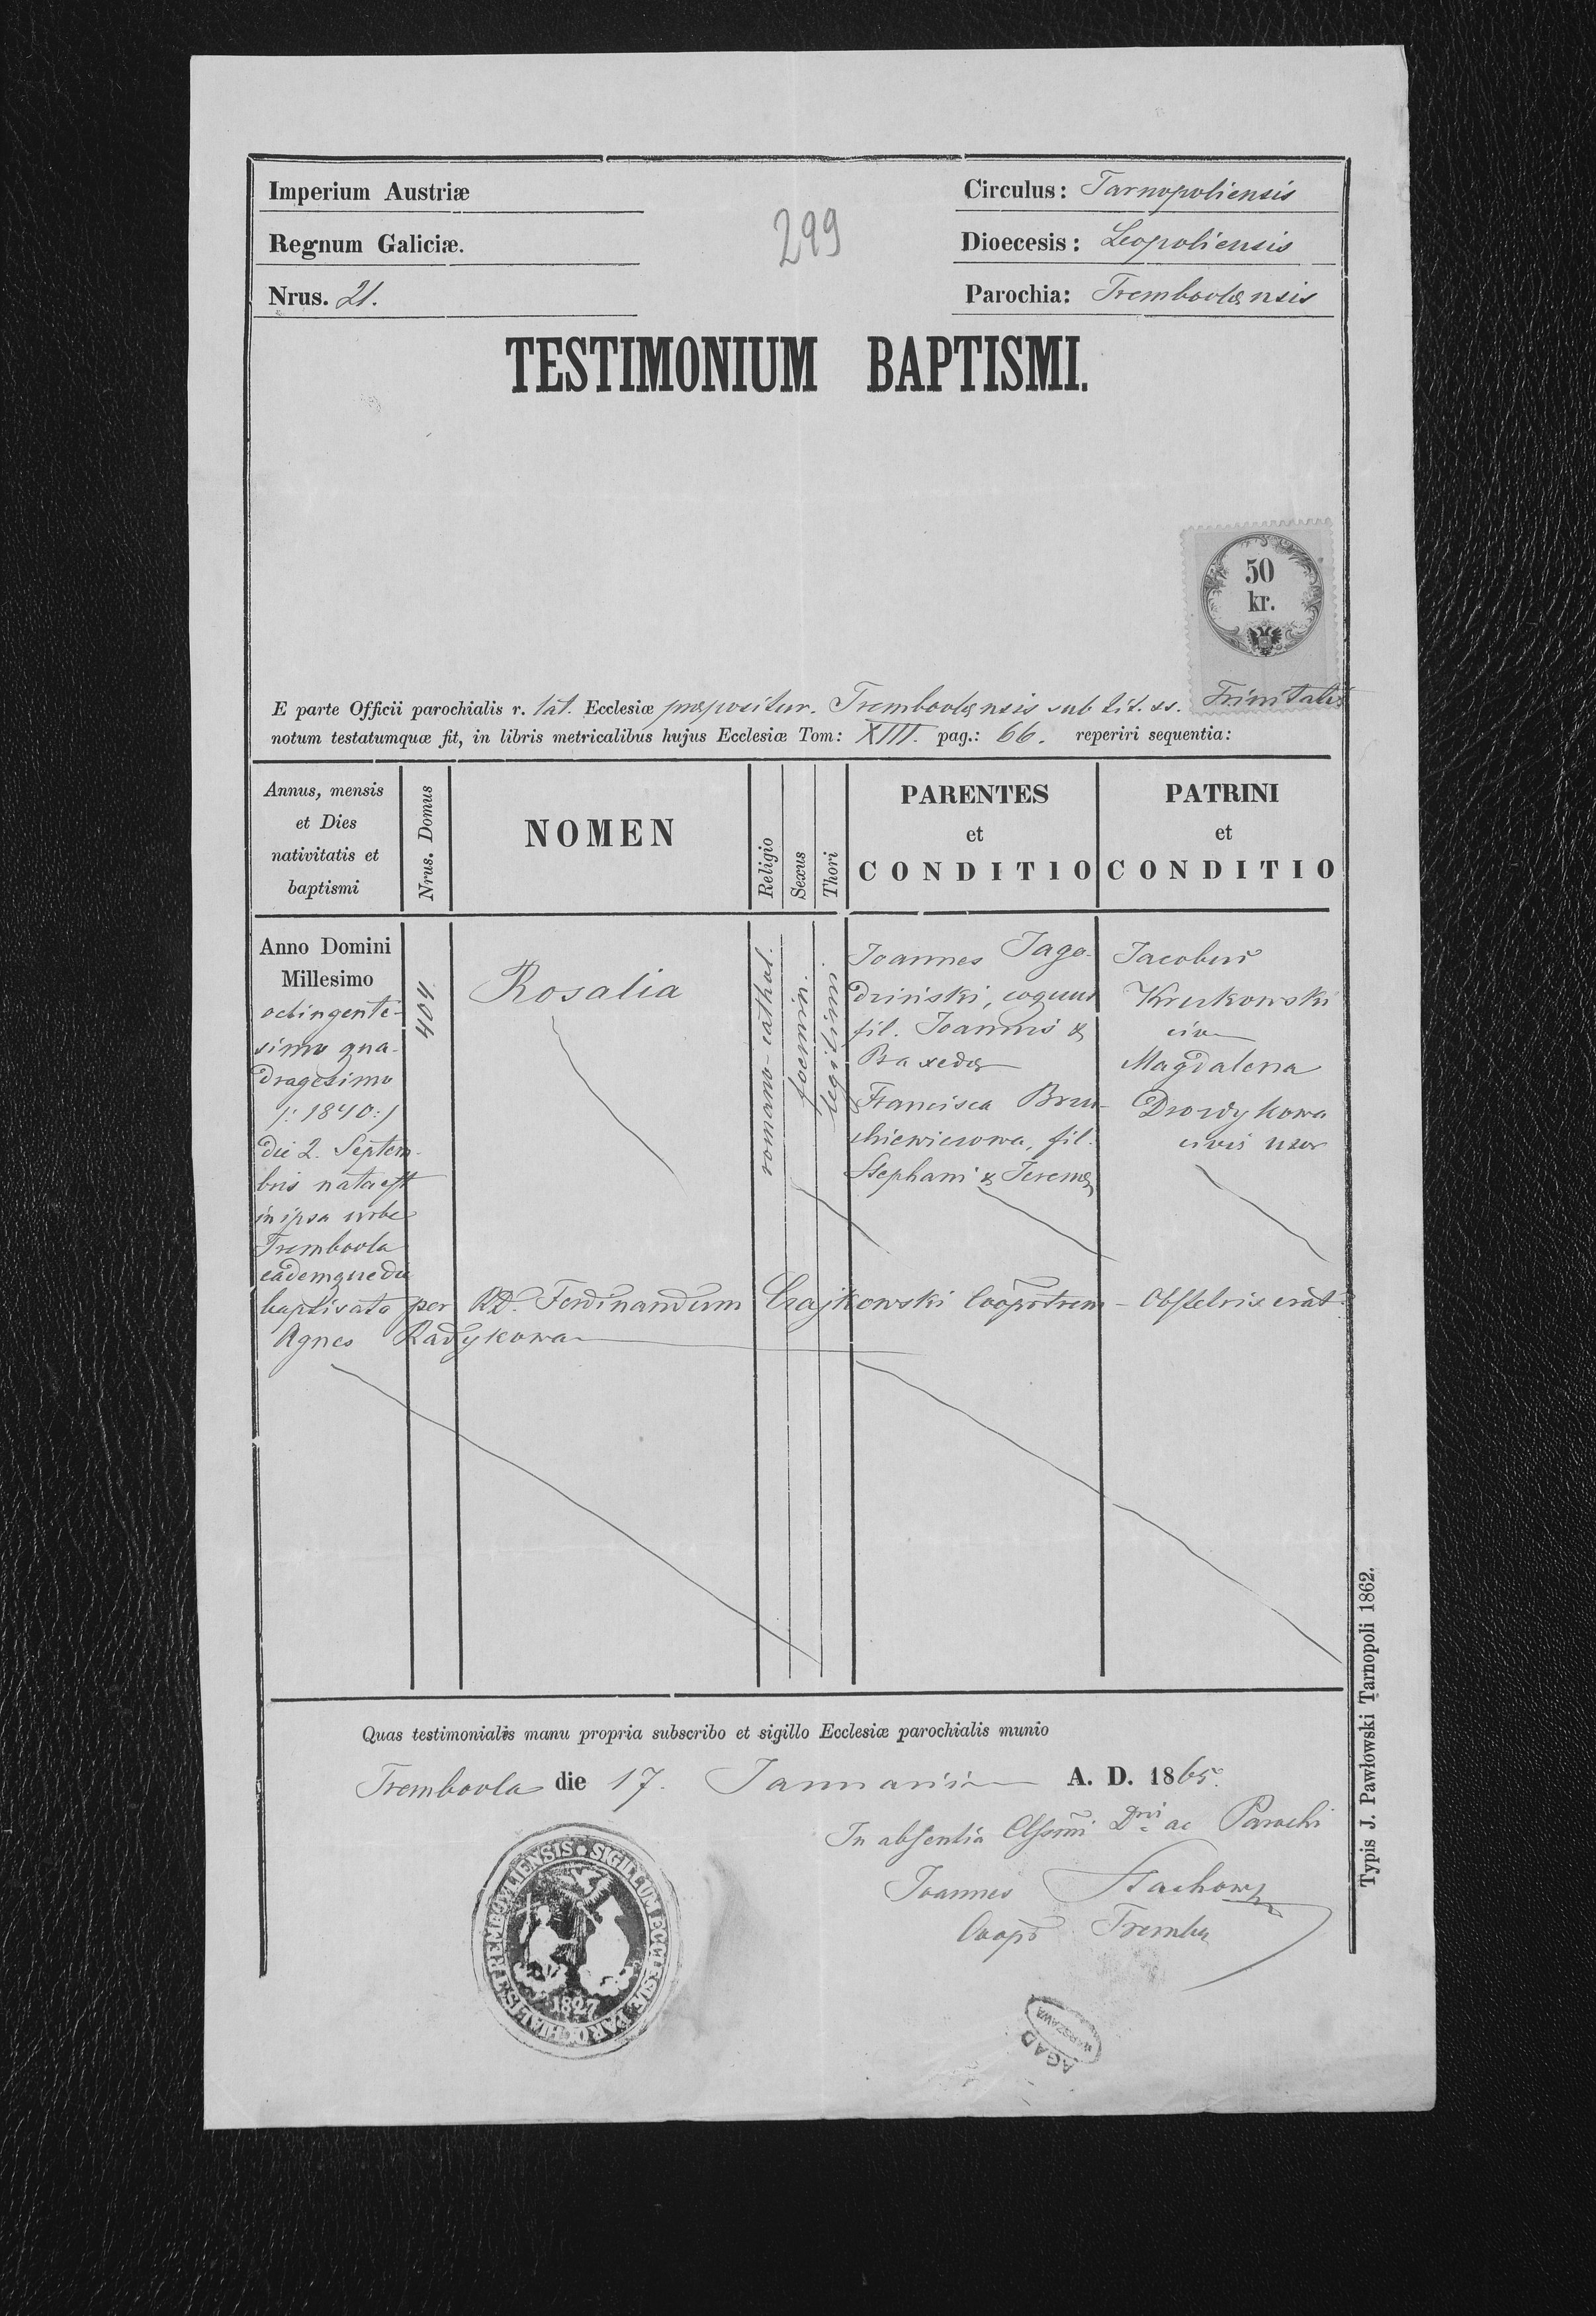 Imperium Austriæ
Circulus: Tarnopoliensis
299
Regnum Galiciæ.
Dioecesis: Leopoliensis
Nrus. 21.
Parochia: Trembovlensis
TESTIMONIUM BAPTISMI.
50
kr.
E parte Officii parochialis r. lat. Ecclesiæ præpositur. Trembovlensis sub tit. ss. Trinitatis
notum testatumquæ fit, in libris metricalibus hujus Ecclesiæ Tom: XIII. pag.: 66. reperiri sequentia:
Annus, mensis
et Dies
nativitatis et
baptismi
Nrus. Domus
NOMEN
Religio
Sexus
Thori
PARENTES
et
CONDITIO
PATRINI
et
CONDITIO
Anno Domini
Millesimo
octingente-
simo qua-
dragesimo
/: 1840 :/
die 2. Septem-
bris nata est
in ipsa urbe
Trembovla
eademque die
404
Rosalia
romano-cathol.
foemin.
legitimi
Joannes Jago-
dziński, coquus
fil. Joannis &
Praxedæ
Francisca Bru-
chiewiczowa, fil.
Stephani &
Jacobus
Krukowski
civis
Magdalena
Drozdykowa
civis uxor
baptisata per RD. Ferdinandum Czajkowski Cooptrem - Obstetrix erat
Agnes Radykowa
Quas testimonialis manu propria subscribo et sigillo Ecclesiæ parochialis munio
Trembovla die 17. Januarii A. D. 1865.
In absentia Clssmi Dni ac Parochi
Joannes
Coopr Tremb
SIGILLUM ECCLESIÆ PAROCHIALIS TREMBOWLIENSIS
1827
AGAD
WARSZAWA
Typis J. Pawłowski Tarnopoli 1862.